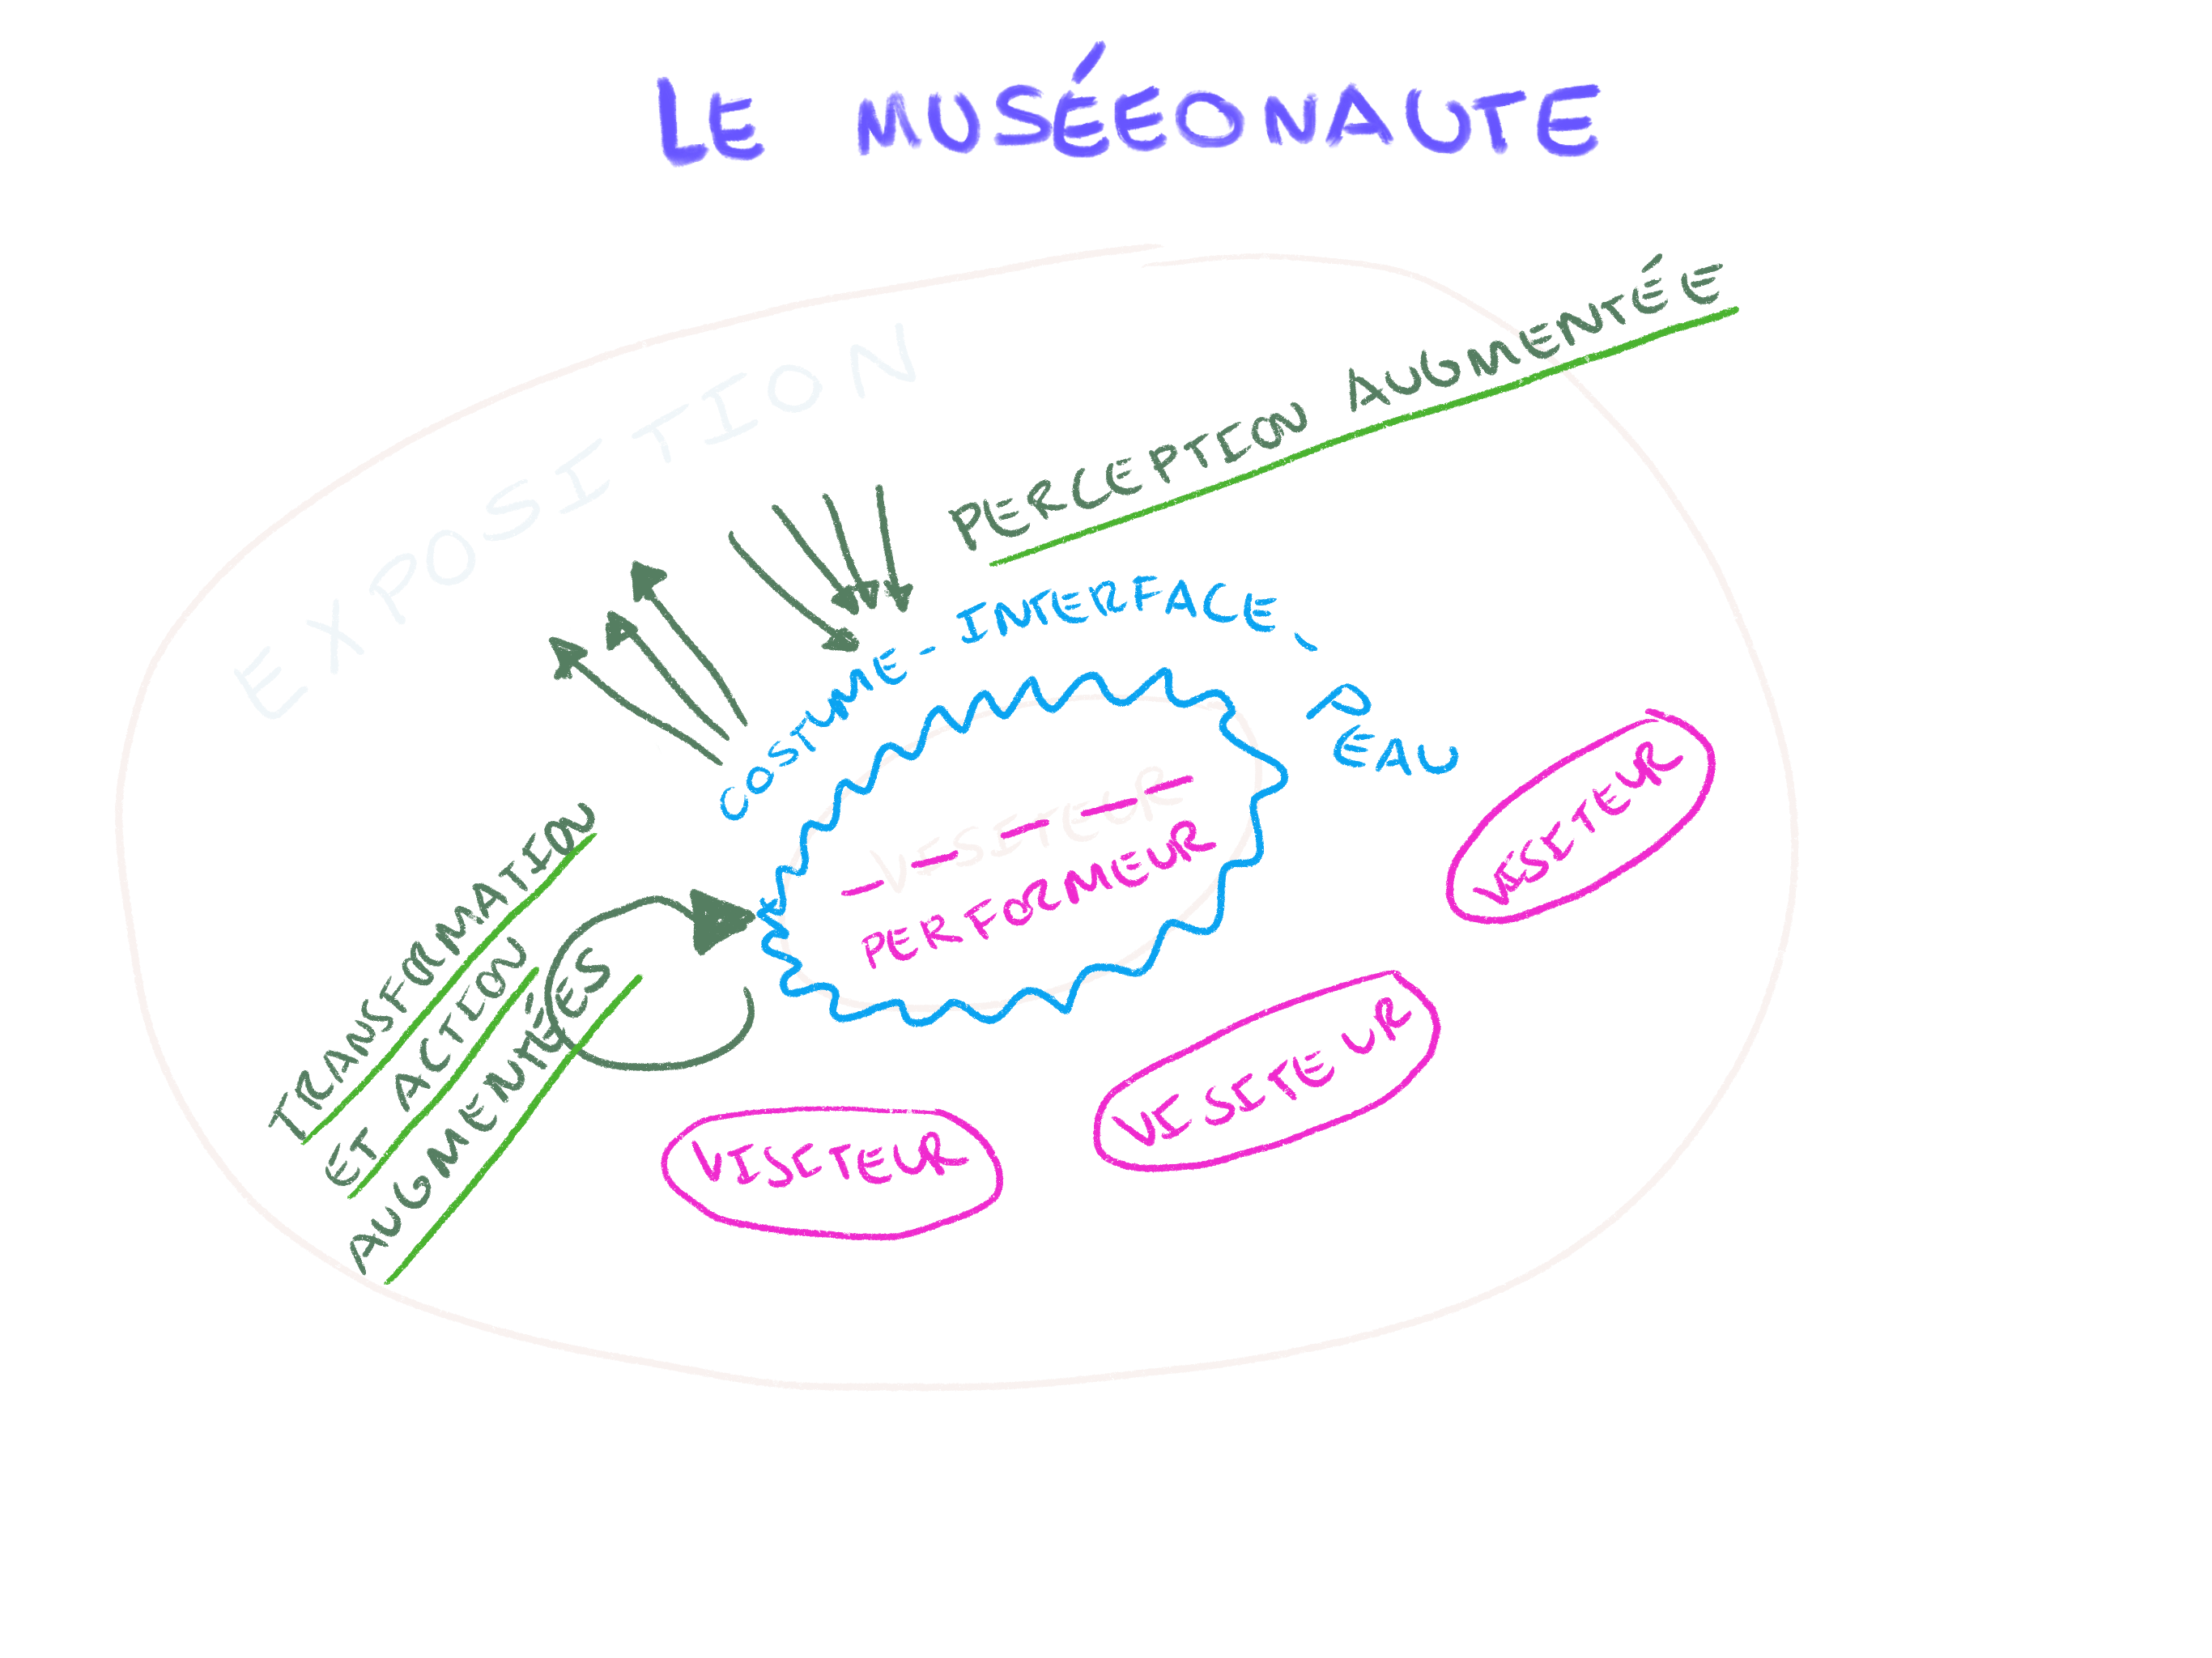 LE MUSÉEONAUTE
EXPOSITION
PERCEPTION AUGMENTÉE
COSTUME-INTERFACE-PEAU
VISITEUR
PERFORMEUR
TRANSFORMATION
ET ACTION
AUGMENTÉES
VISITEUR
VISITEUR
VISITEUR